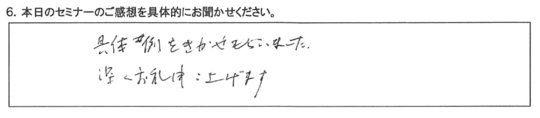 6. 本日のセミナーのご感想を具体的にお聞かせください。
具体例をきかせてもらいました。
深くお礼申し上げます